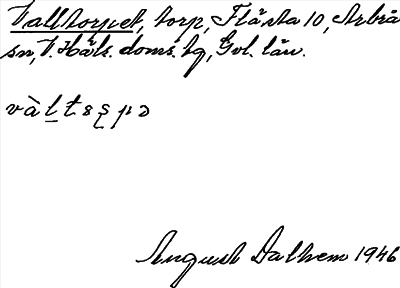 Valltorpet, torp, Flästa 10, Arbrå
sn, V. Häls. doms. hg, Gvl. län.
August Dalhem 1946